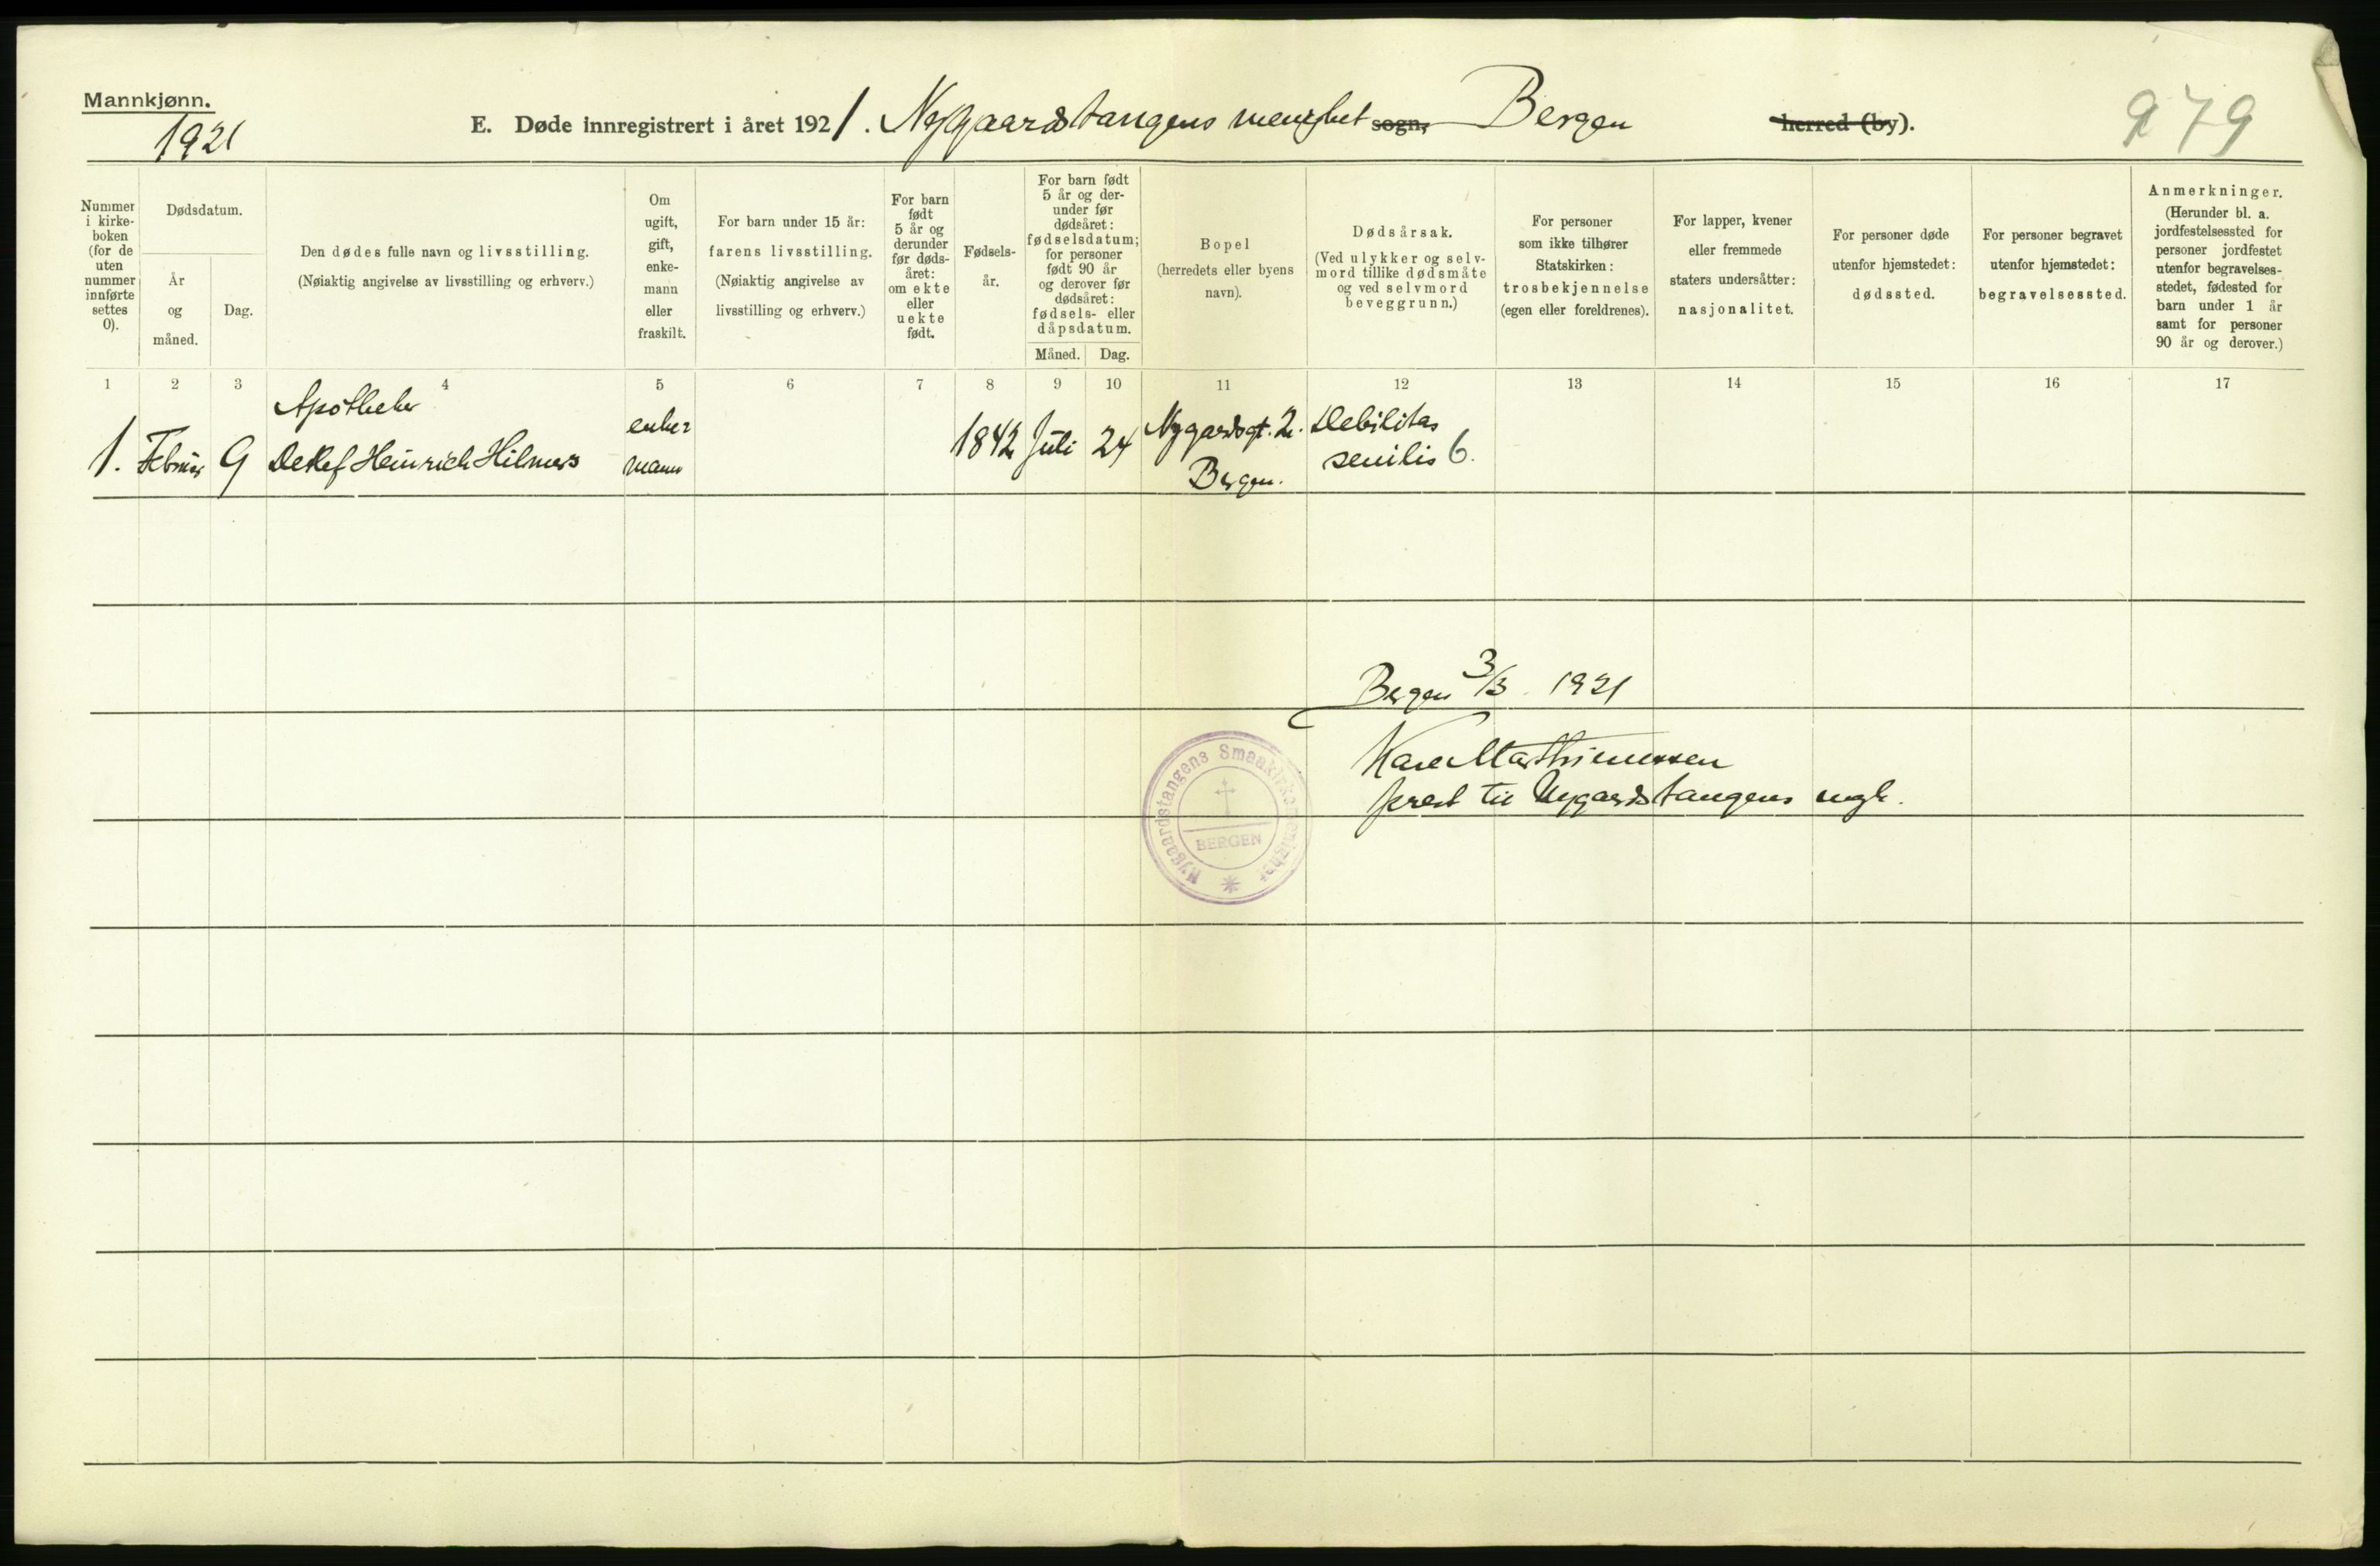 Mannkjønn.
1921
E. Døde innregistrert i året 1921. Nygaardstangens menighet sogn, Bergen herred (by).
979
Nummer i kirke-boken (for de uten nummer innførte settes 0).
Dødsdatum.
År og måned.
Dag.
Den dødes fulle navn og livsstilling.
(Nøiaktig angivelse av livsstilling og erhverv.)
Om ugift, gift, enke-mann eller fraskilt.
For barn under 15 år:
farens livsstilling.
(Nøiaktig angivelse av livsstilling og erhverv.)
For barn født 5 år og derunder før døds-året: om ekte eller uekte født.
Fødsels-år.
For barn født 5 år og der-under før dødsåret: fødselsdatum; for personer født 90 år og derover før dødsåret: fødsels- eller dåpsdatum.
Måned. Dag.
Bopel
(herredets eller byens navn).
Dødsårsak.
(Ved ulykker og selv-mord tillike dødsmåte og ved selvmord beveggrunn.)
For personer som ikke tilhører Statskirken: trosbekjennelse (egen eller foreldrenes).
For lapper, kvener eller fremmede staters undersåtter: nasjonalitet.
For personer døde utenfor hjemstedet: dødssted.
For personer begravet utenfor hjemstedet: begravelsessted.
Anmerkninger.
(Herunder bl. a. jordfestelsessted for personer jordfestet utenfor begravelses-stedet, fødested for barn under 1 år samt for personer 90 år og derover.)
1 2 3 4 5 6 7 8 9 10 11 12 13 14 15 16 17
Apotheker
1. Februar 9 Detlef Heinrich Hilmers
enke-
mann
1842 Juli 24
Nygaardsgt. 2.
Bergen.
Debilitas
senilis 6.
Bergen 3/3. 1921
Mathiesen
prest til Nygaardstangens mgh.
Nygaardstangens Smaakirkemenighet
BERGEN